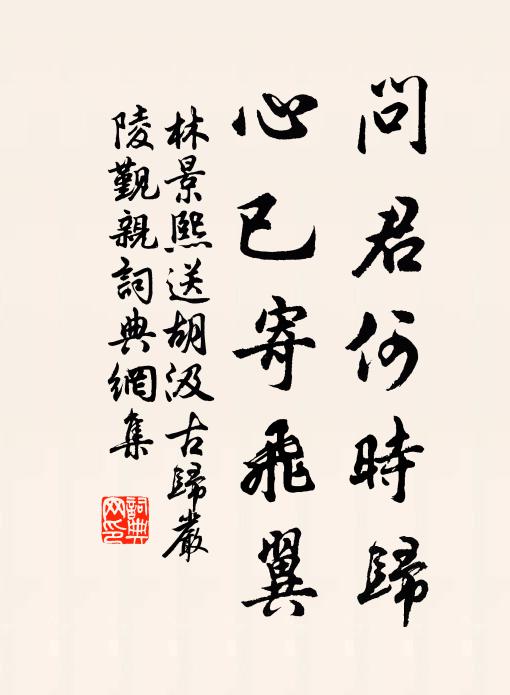 問君何時歸
心已寄飛翼
林景熙送胡汲古歸嚴
陵覲親詞典網集
詞典
网印